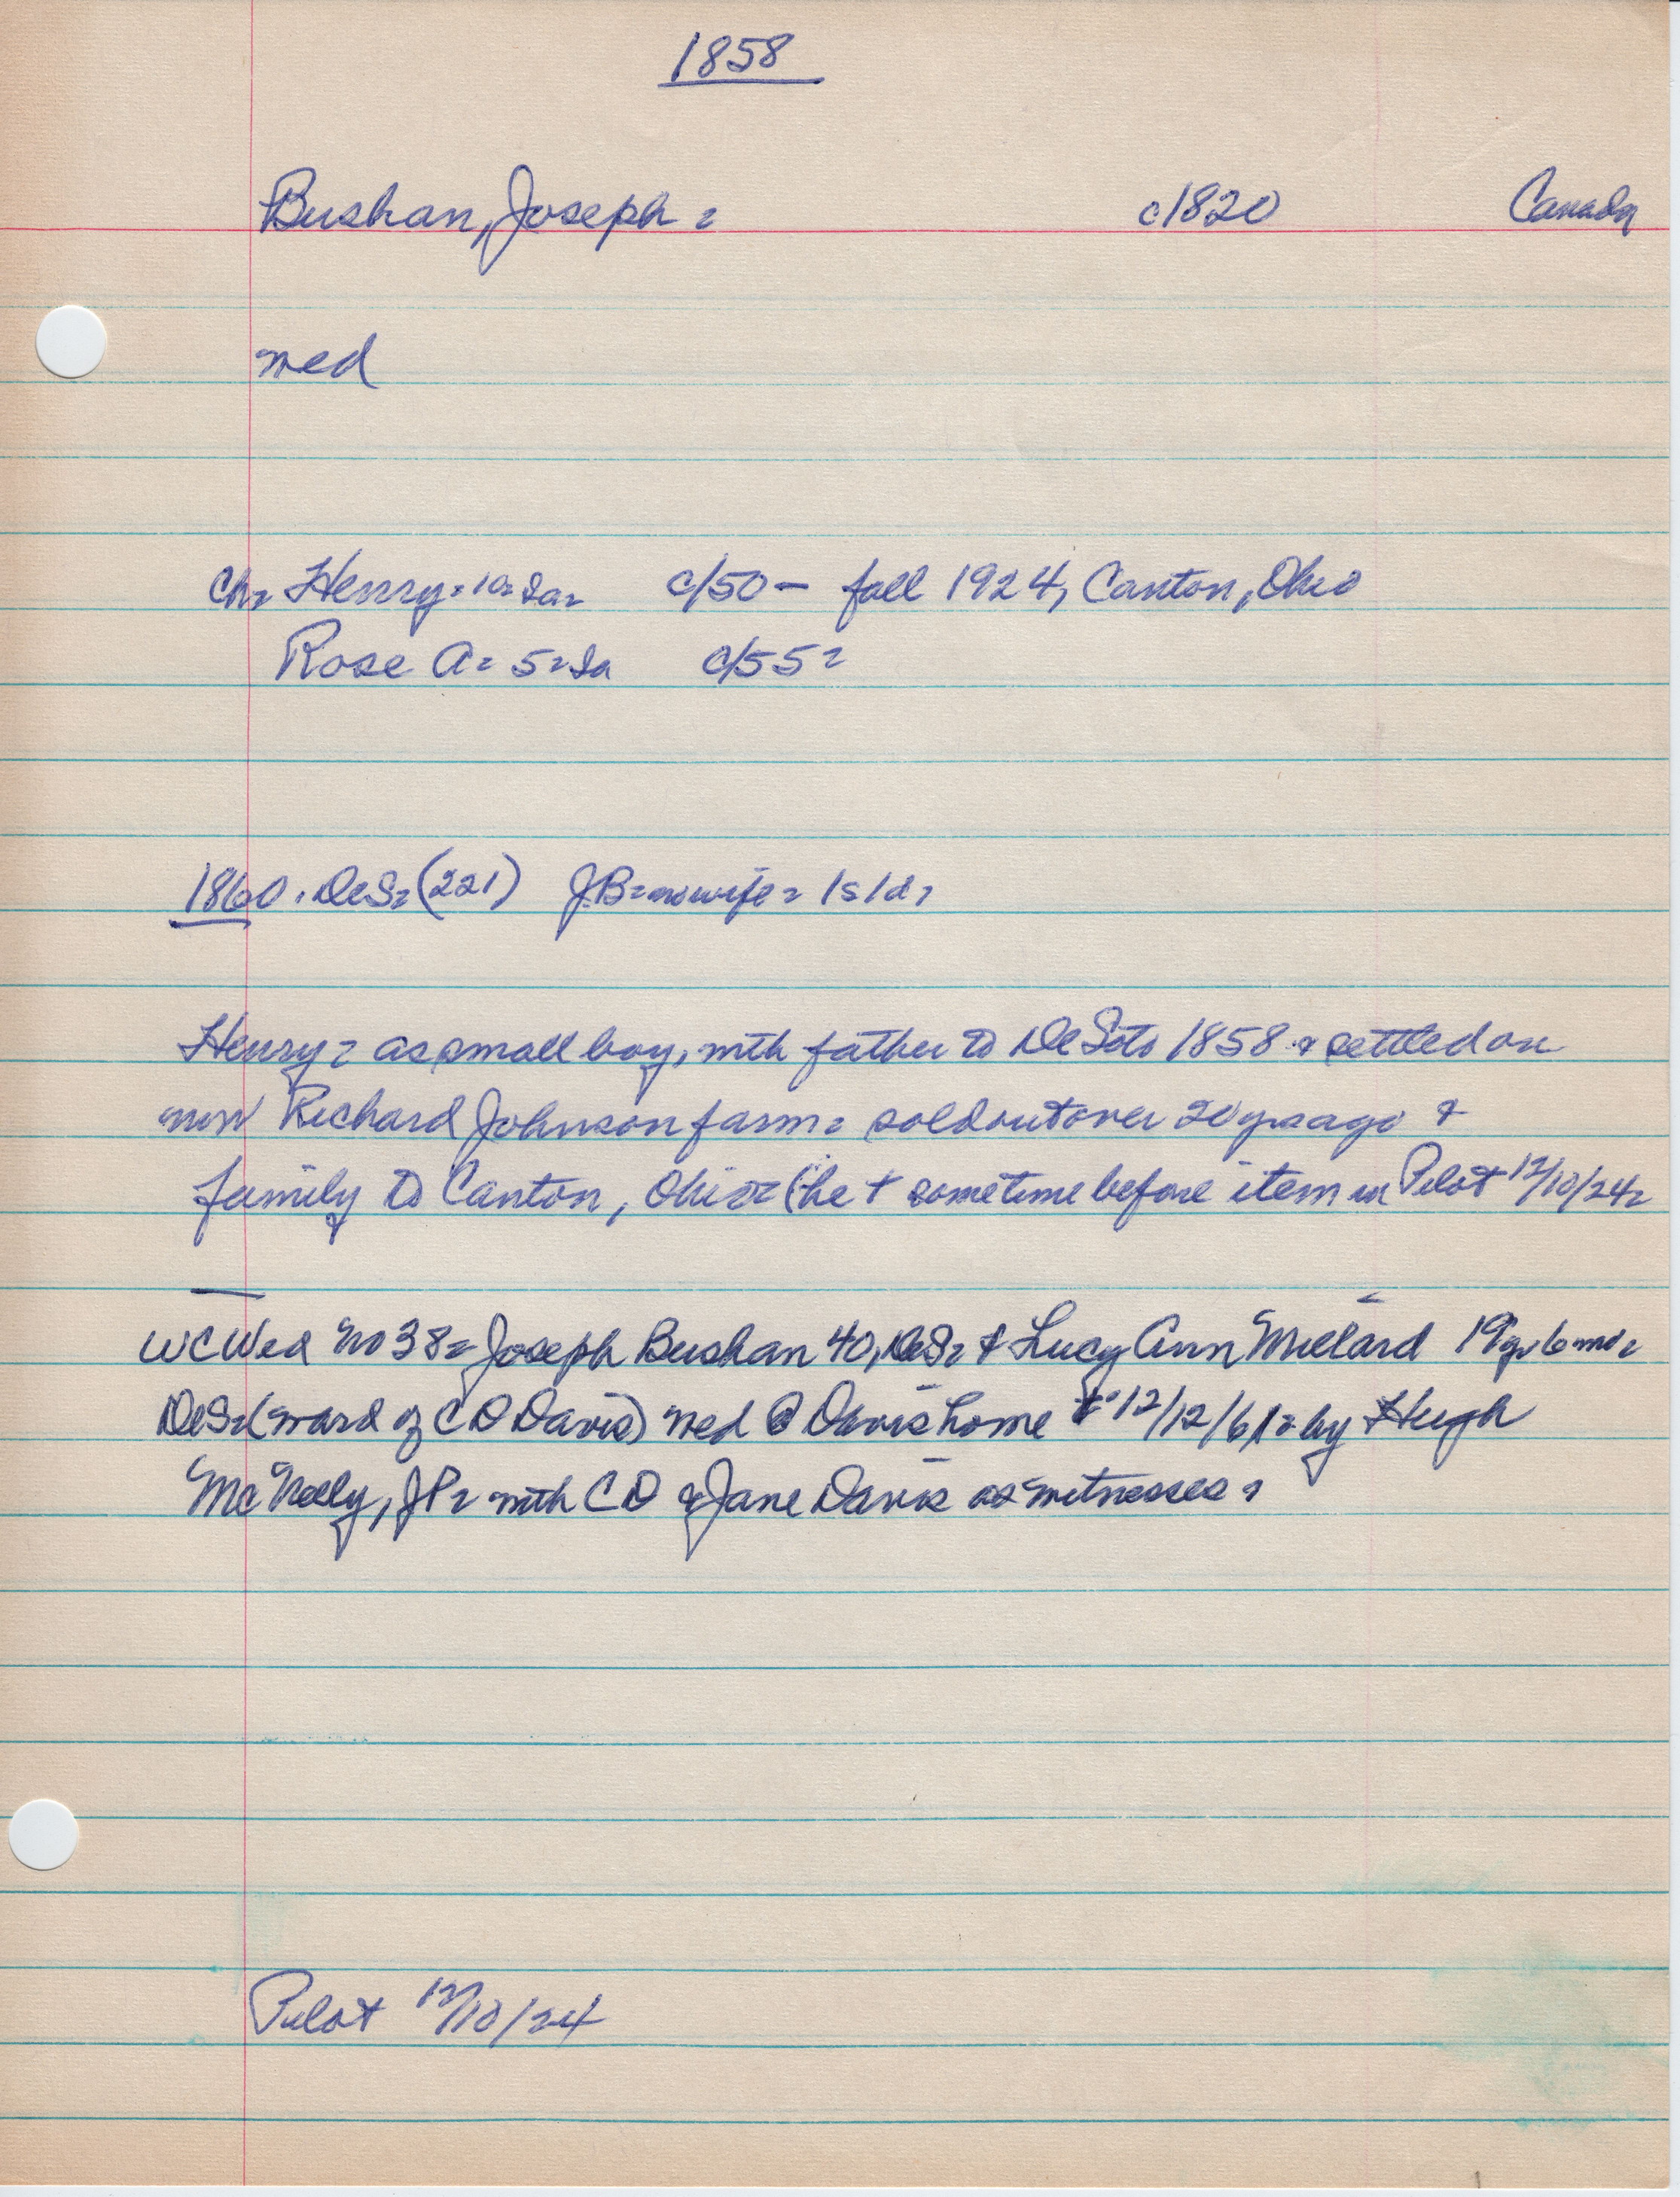 1858
Bushan, Joseph - c1820 Canada
wed
Ch- Henry - 10 - Ia - c/50 - fall 1924, Canton, Ohio
Rose A - 5 - Ia c/55 -
1860. DeS - (221) J.B - no wife - 1s 1d -
Henry - as small boy, with father to DeSoto 1858 & settled on
now Richard Johnson farm - sold out over 20 yrs ago &
family to Canton, Ohio - (he + sometime before item in Pilot 12/10/24 -
WC Wed No 38 - Joseph Bushan 40, DeS - & Lucy Ann Millard 19y. 6 mo -
DeS - (ward of C D Davis) wed @ Davis home 12/12/61 - by Hugh
McNeely, JP - with C D & Jane Davis as witnesses -
Pilot 12/10/24